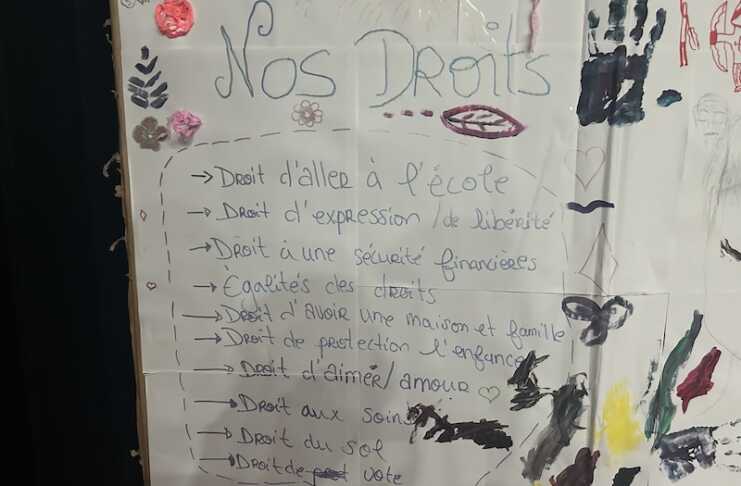 Nos Droits
→ Droit d'aller à l'école
→ Droit d'expression /de libérité
→ Droit à une sécurité financières
→ Égalités des droits
→ Droit d'avoir une maison et famille
→ Droit de protection l'enfance
→ Droit d'aimér/amour ♡
→ Droit aux soins
→ Droit du sol
→ Droit de vote